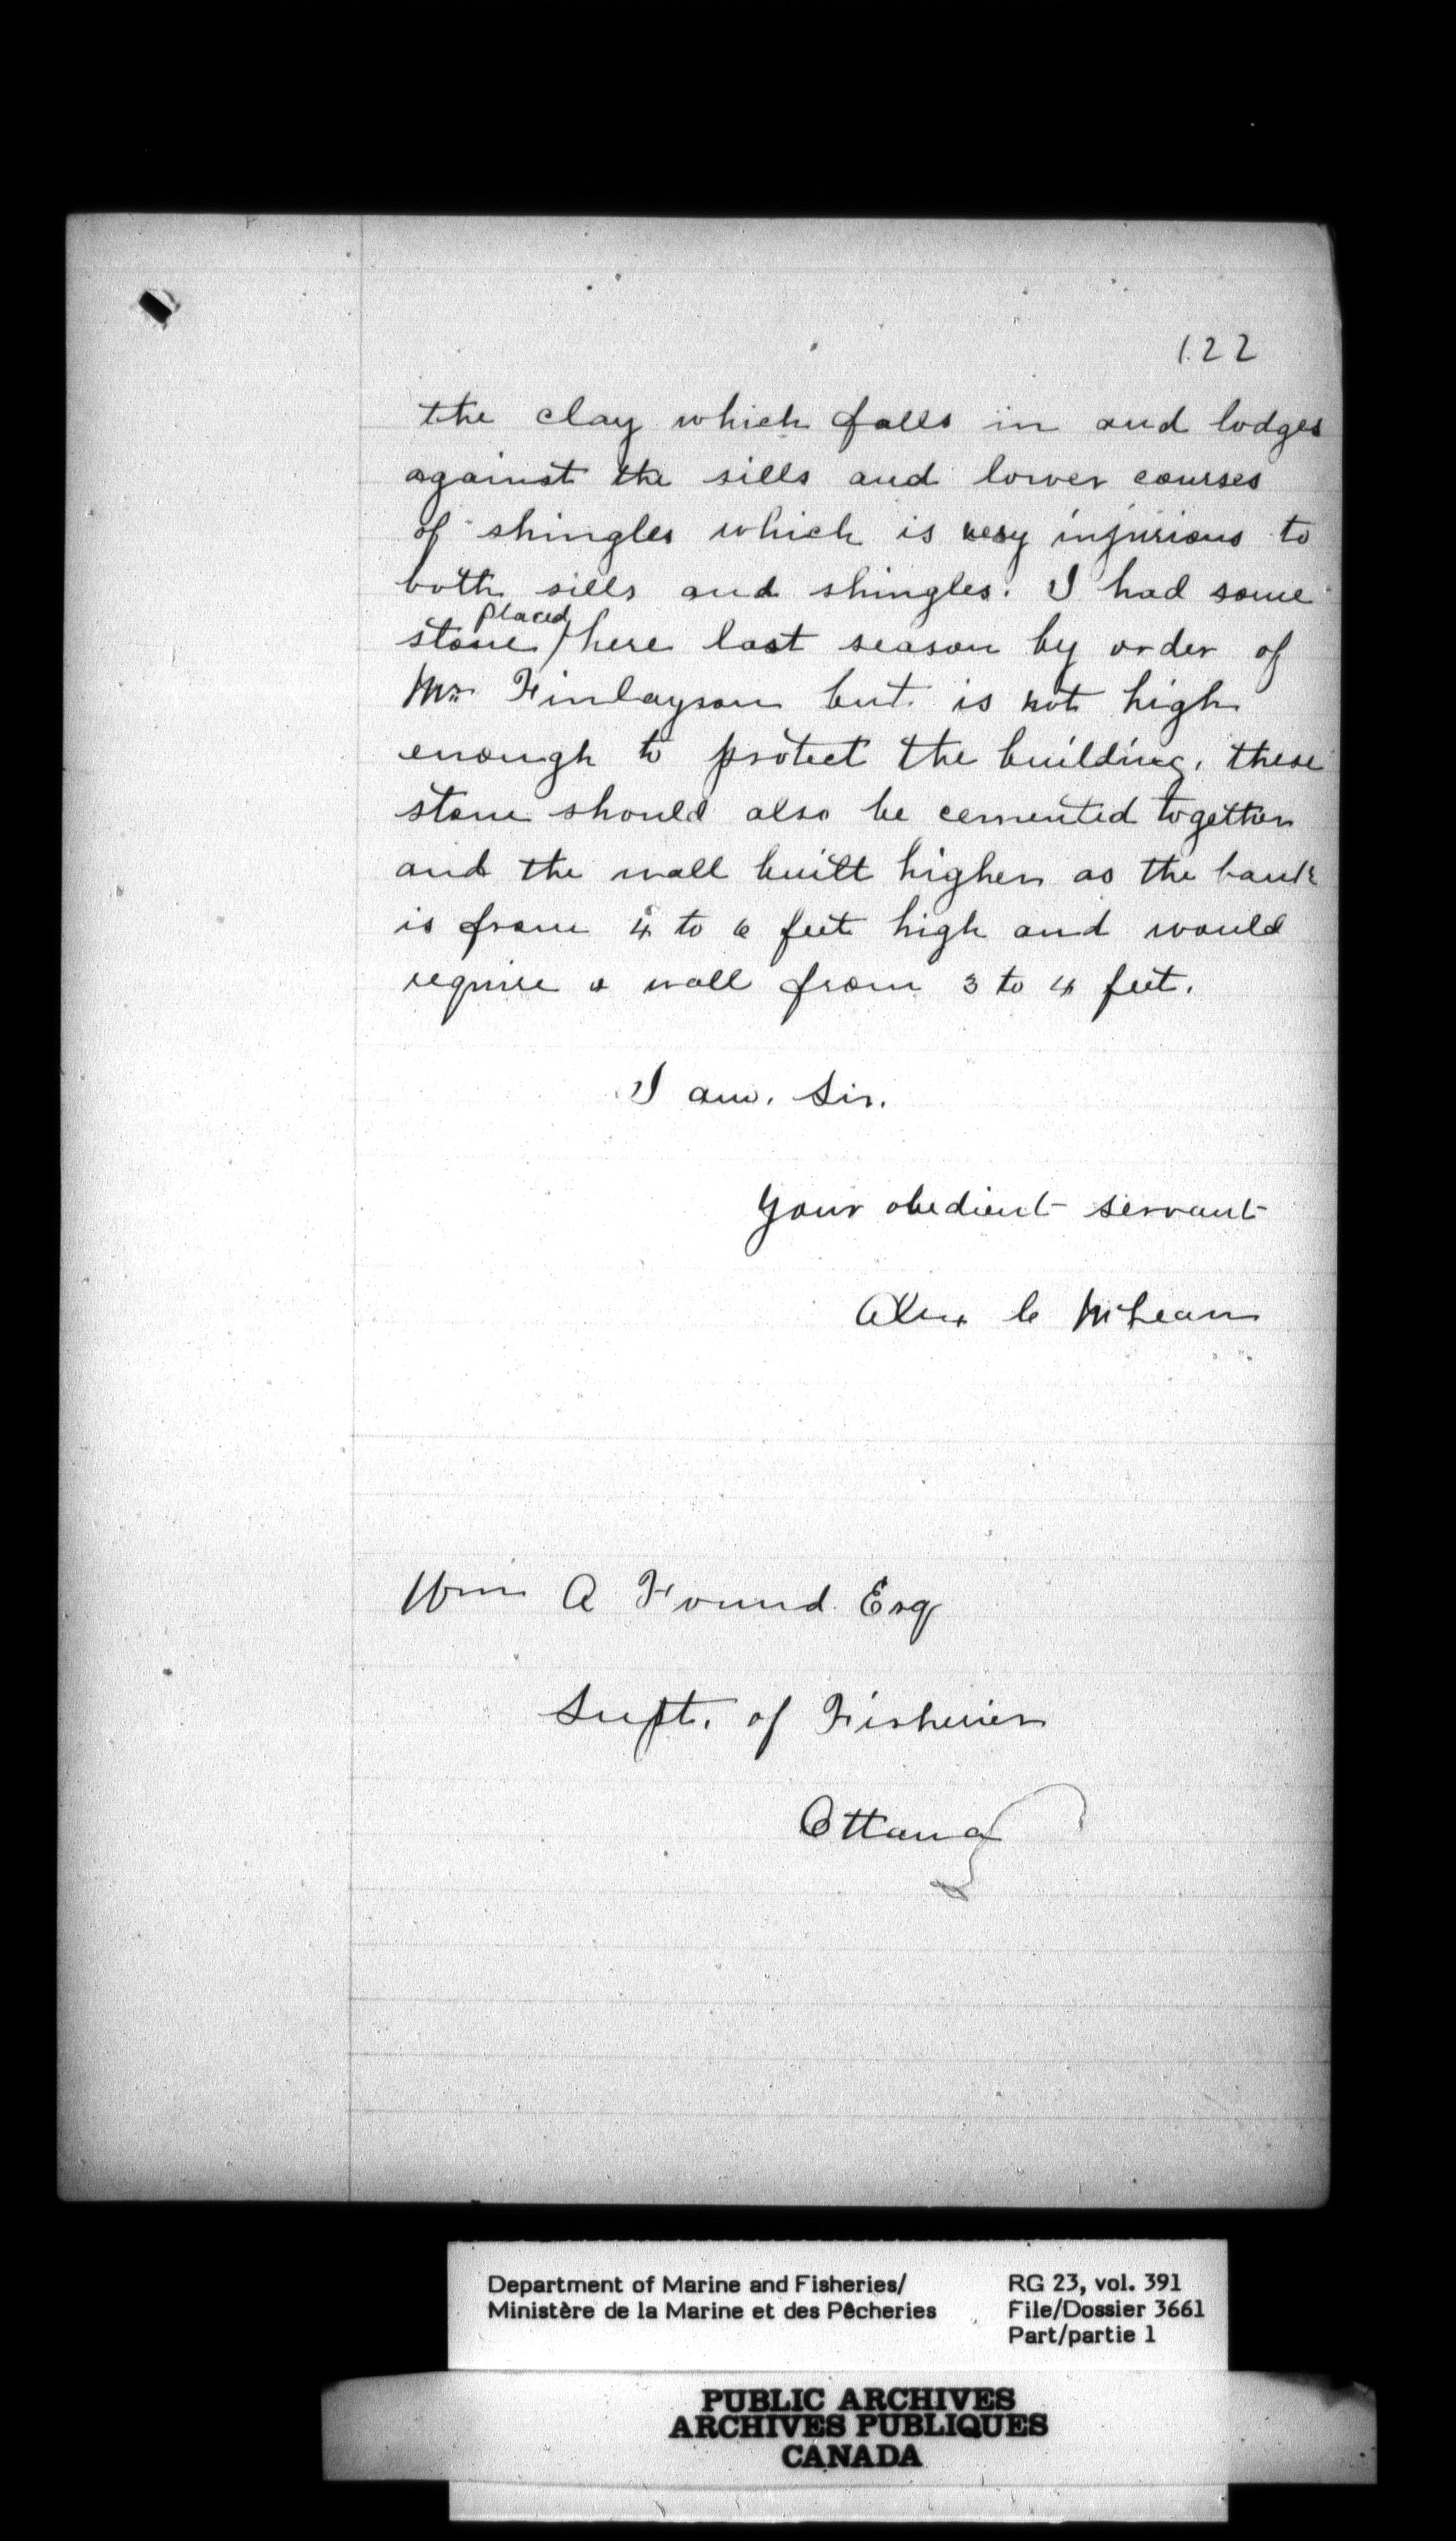 122
the clay which falls in and lodges
against the sills and lower courses
of shingles which is very injurious to
both sills and shingles. I had some
placed
stone here last season by order of
Mr. Finlayson but is not high
enough to protect the building, these
stone should also be cemented together
and the wall built higher as the bank
is from 4 to 6 feet high and would
require a wall from 3 to 4 feet.
I am, Sir.
Your obedient servant
Alex C McLean
Wm A Found Esq
Supt. of Fisheries
Ottawa
Department of Marine and Fisheries/
Ministère de la Marine et des Pêcheries
RG 23, vol. 391
File/Dossier 3661
Part/partie 1
PUBLIC ARCHIVES
ARCHIVES PUBLIQUES
CANADA